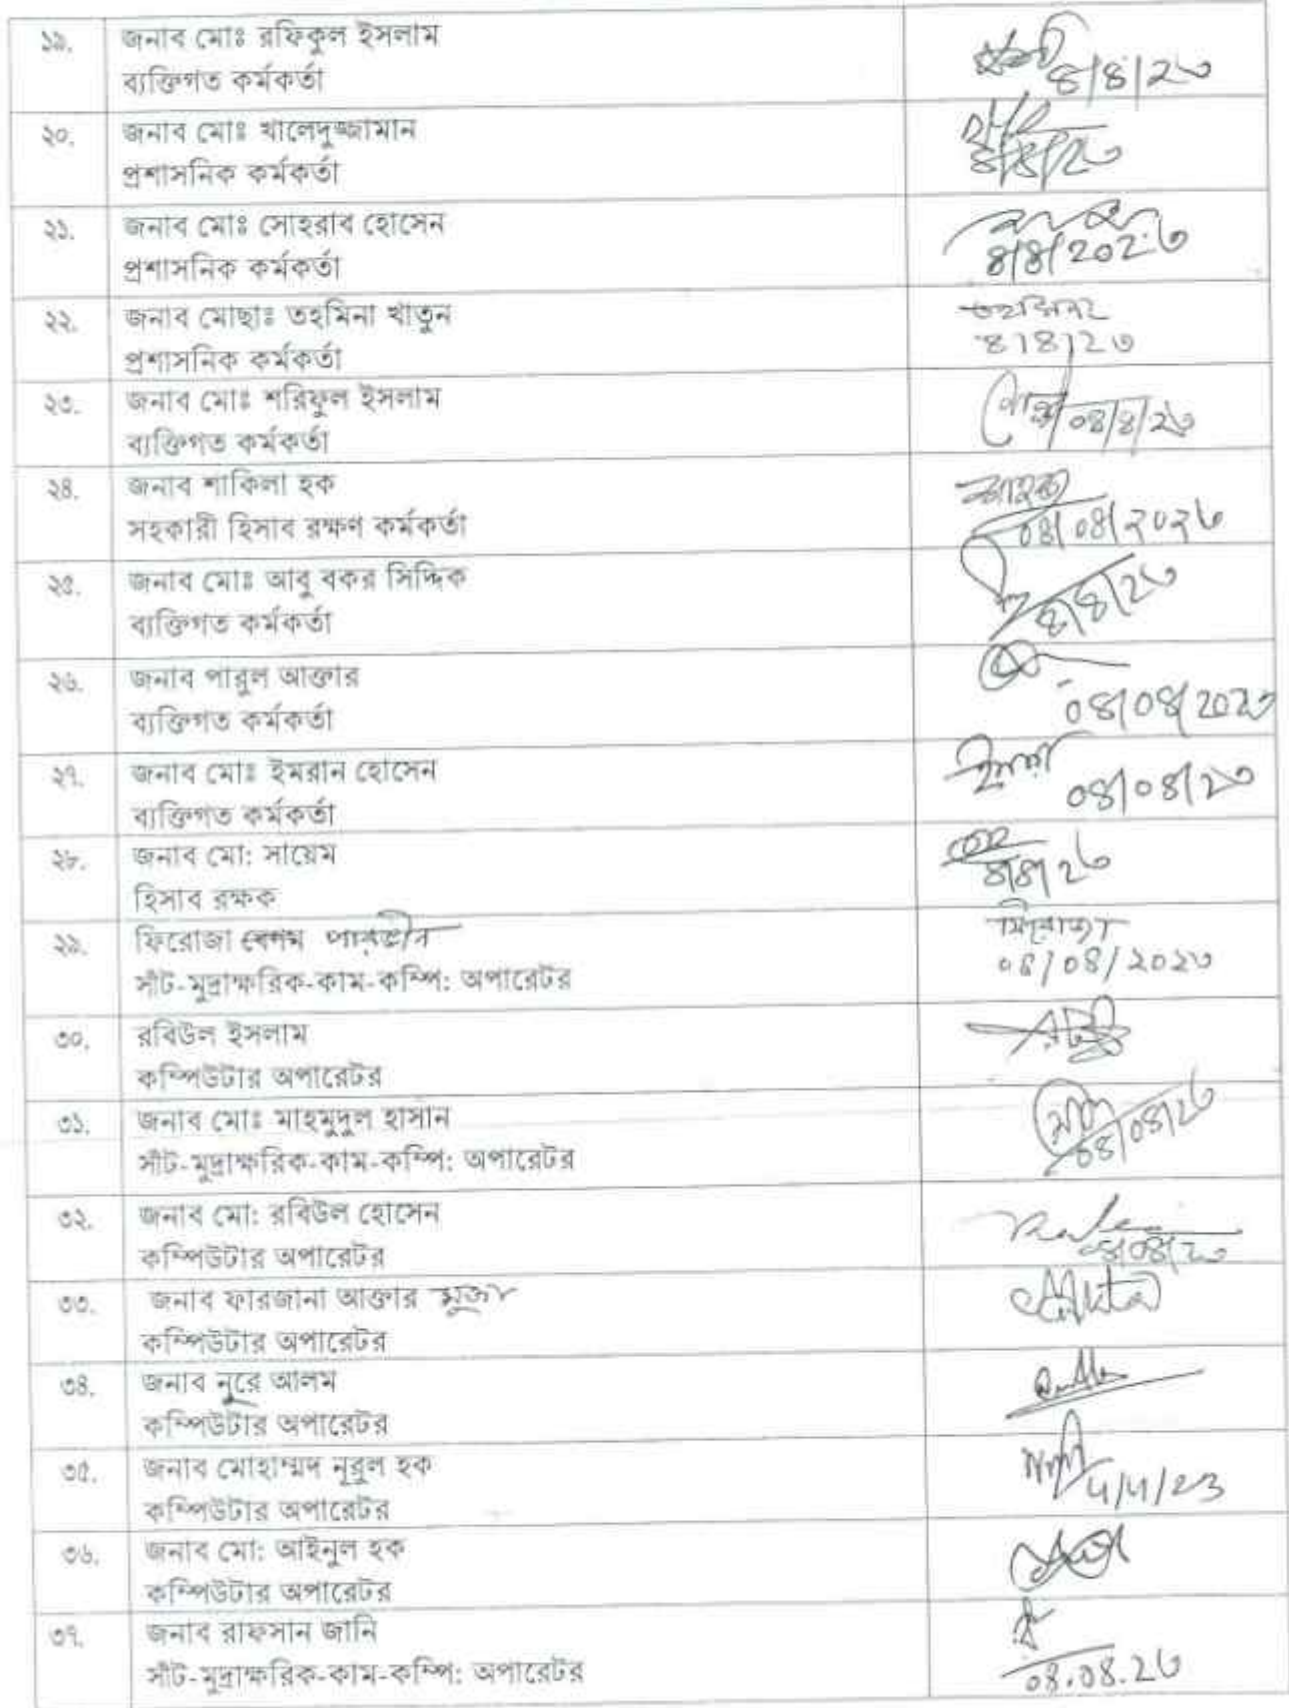 ১৯. জনাব মোঃ রফিকুল ইসলাম
ব্যক্তিগত কর্মকর্তা
৪/৪/২৩
২০. জনাব মোঃ খালেদুজ্জামান
প্রশাসনিক কর্মকর্তা
৪/৪/২৩
২১. জনাব মোঃ সোহরাব হোসেন
প্রশাসনিক কর্মকর্তা
৪/৪/২০২৩
২২. জনাব মোছাঃ তহমিনা খাতুন তহমিনা
প্রশাসনিক কর্মকর্তা ৪/৪/২৩
২৩. জনাব মোঃ শরিফুল ইসলাম
ব্যক্তিগত কর্মকর্তা
০৪/৪/২৩
২৪. জনাব শাকিলা হক
সহকারী হিসাব রক্ষণ কর্মকর্তা
০৪/০৪/২০২৩
২৫. জনাব মোঃ আবু বকর সিদ্দিক
ব্যক্তিগত কর্মকর্তা
৪/৪/২৩
২৬. জনাব পারুল আক্তার
ব্যক্তিগত কর্মকর্তা
০৪/০৪/২০২৩
২৭. জনাব মোঃ ইমরান হোসেন
ব্যক্তিগত কর্মকর্তা
০৪/০৪/২৩
২৮. জনাব মো: সায়েম
হিসাব রক্ষক
৪/৪/২৩
২৯. ফিরোজা বেগম পারভীন ফিরোজা
সাঁট-মুদ্রাক্ষরিক-কাম-কম্পি: অপারেটর ০৪/০৪/২০২৩
৩০. রবিউল ইসলাম
কম্পিউটার অপারেটর
৩১. জনাব মোঃ মাহমুদুল হাসান
সাঁট-মুদ্রাক্ষরিক-কাম-কম্পি: অপারেটর
০৪/০৪/২৩
৩২. জনাব মো: রবিউল হোসেন
কম্পিউটার অপারেটর
০৪/০৪/২৩
৩৩. জনাব ফারজানা আক্তার মুক্তা
কম্পিউটার অপারেটর
৩৪. জনাব নূরে আলম
কম্পিউটার অপারেটর
৩৫. জনাব মোহাম্মদ নূরুল হক
কম্পিউটার অপারেটর
4/4/23
৩৬. জনাব মো: আইনুল হক
কম্পিউটার অপারেটর
৩৭. জনাব রাফসান জানি
সাঁট-মুদ্রাক্ষরিক-কাম-কম্পি: অপারেটর
০৪.০৪.২৩